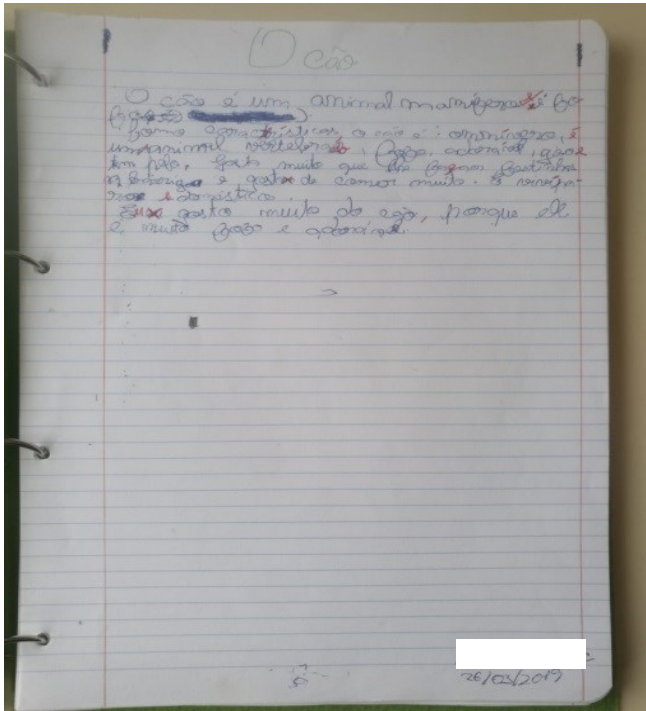 O cão
O cão é um animal mamífero é
como características o cão é: omnívoro, é
um animal vertebrado, fofo, adorável,
tem pelo. Gosta muito que lhe façam festinhas
barriga e gosta de comer muito. É
doméstico.
Eu gosto muito do cão, porque ele
é muito fofo e adorável.
26/03/2019